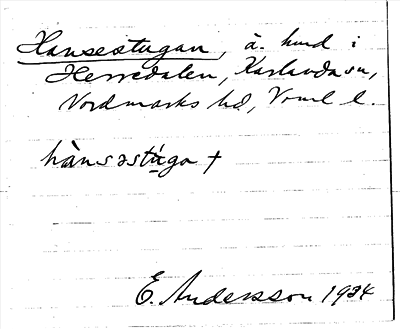 Hansestugan, ä. hmd i
Herredalen, Karlanda sn,
Nordmarks hd, Vrml l.
hànsəstúga +
E. Andersson 1934